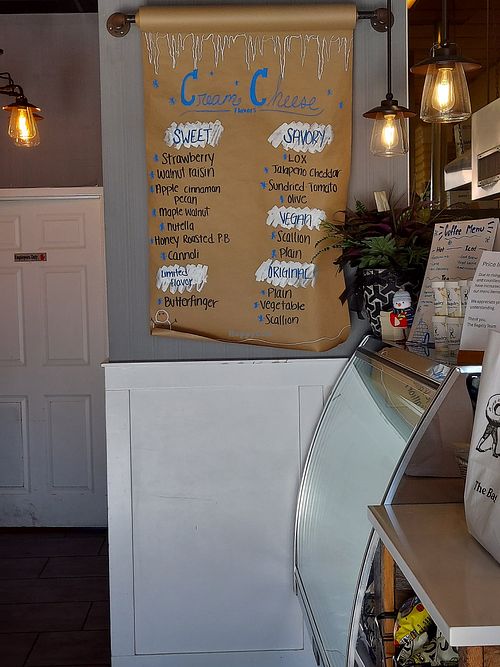 Cream Cheese
FLAVORS
SWEET
Strawberry
Walnut raisin
Apple cinnamon
pecan
Maple walnut
nutella
Honey Roasted P.B
Cannoli
Limited
Flavor
Butterfinger
SAVORY
LOX
Jalapeno Cheddar
Sundried Tomato
Olive
VEGAN
Scallion
Plain
ORIGINAL
Plain
Vegetable
Scallion
Employees Only
Coffee Menu
Hot
Iced
Price
Thank you,
The Bagelry Team
The Ba